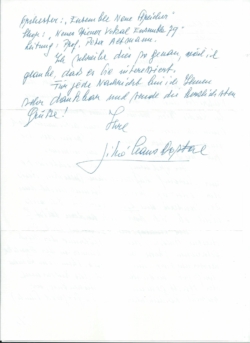 Orchester: „Ensemble Neue Streicher"
Chor: „Neues Wiener Vokal Ensemble 79"
Leitung: Prof. Peter Altmann.
Ich schreibe dies so genau, weil ich
glaube, daß es Sie interessiert.
Für jede Nachricht bin ich Ihnen
sehr dankbar und sende die herzlichsten
Grüße!
Ihre